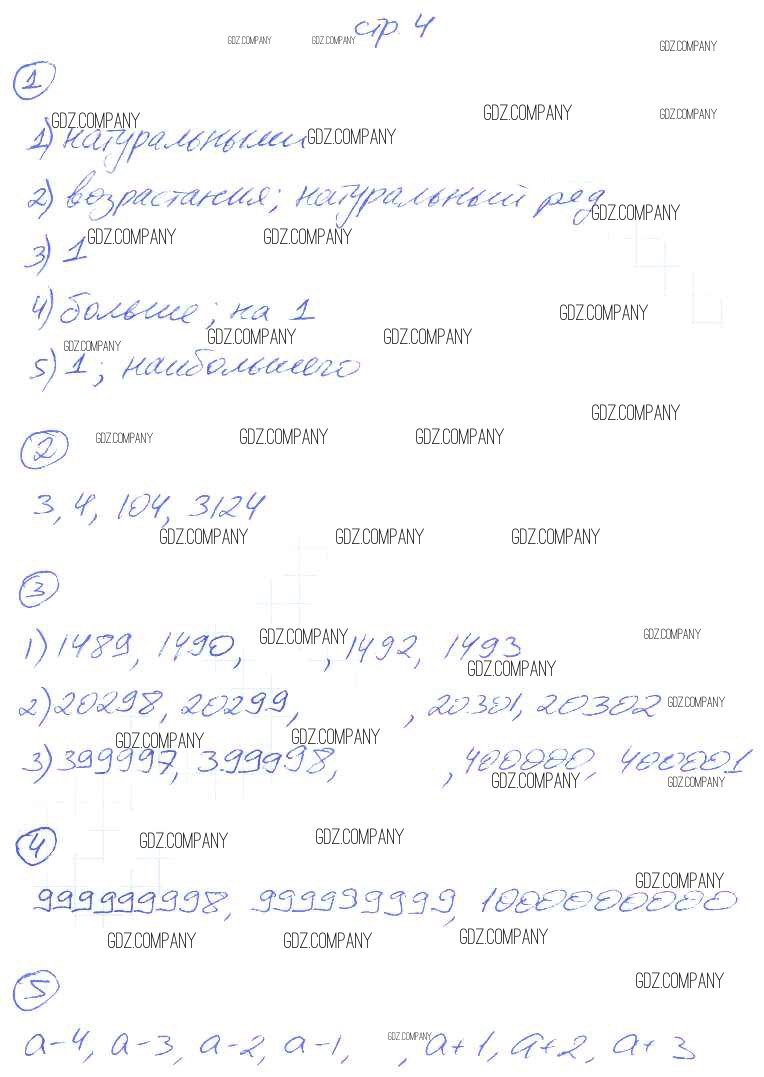 стр. 4
GDZ.COMPANY GDZ.COMPANY GDZ.COMPANY
1
GDZ.COMPANY GDZ.COMPANY GDZ.COMPANY
1) натуральными GDZ.COMPANY
2) возрастания; натуральный ряд
GDZ.COMPANY
GDZ.COMPANY GDZ.COMPANY
3) 1
4) больше; на 1 GDZ.COMPANY
GDZ.COMPANY GDZ.COMPANY
GDZ.COMPANY
5) 1; наибольшего
GDZ.COMPANY
2 GDZ.COMPANY GDZ.COMPANY GDZ.COMPANY
3, 4, 104, 3124
GDZ.COMPANY GDZ.COMPANY GDZ.COMPANY
3
GDZ.COMPANY GDZ.COMPANY
1) 1489, 1490, , 1492, 1493
GDZ.COMPANY
2) 20298, 20299, , 20301, 20302 GDZ.COMPANY
GDZ.COMPANY GDZ.COMPANY
3) 399997, 399998, , 400000, 400001
GDZ.COMPANY GDZ.COMPANY
4 GDZ.COMPANY GDZ.COMPANY
GDZ.COMPANY
999999998, 999999999, 1000000000
GDZ.COMPANY GDZ.COMPANY GDZ.COMPANY
5 GDZ.COMPANY
a-4, a-3, a-2, a-1, GDZ.COMPANY , a+1, a+2, a+3